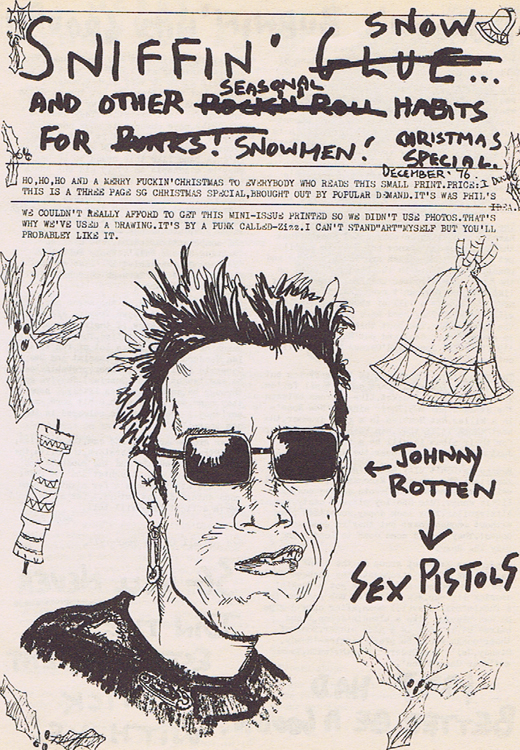 SNOW
SNIFFIN' GLUE...
SEASONAL
AND OTHER ROCK'N ROLL HABITS
FOR PUNKS! SNOWMEN! CHRISTMAS
SPECIAL.
DECEMBER '76.
HO,HO,HO AND A MERRY FUCKIN'CHRISTMAS TO EVERYBODY WHO READS THIS SMALL PRINT.PRICE:I
THIS IS A THREE PAGE SG CHRISTMAS SPECIAL,BROUGHT OUT BY POPULAR DEMAND.IT'S WAS PHIL'S
IDEA.
WE COULDN'T REALLY AFFORD TO GET THIS MINI-ISSUE PRINTED SO WE DIDN'T USE PHOTOS.THAT'S
WHY WE'VE USED A DRAWING.IT'S BY A PUNK CALLED-Zizz.I CAN'T STAND"ART"MYSELF BUT YOU'LL
PROBABLEY LIKE IT.
← JOHNNY
ROTTEN
↓
SEX PISTOLS